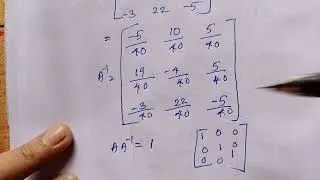 -3 22 -5
= -5/40 10/40 5/40
A⁻¹= 19/40 -4/40 5/40
-3/40 22/40 -5/40
AA⁻¹ = 1
1 0 0
0 1 0
0 0 1